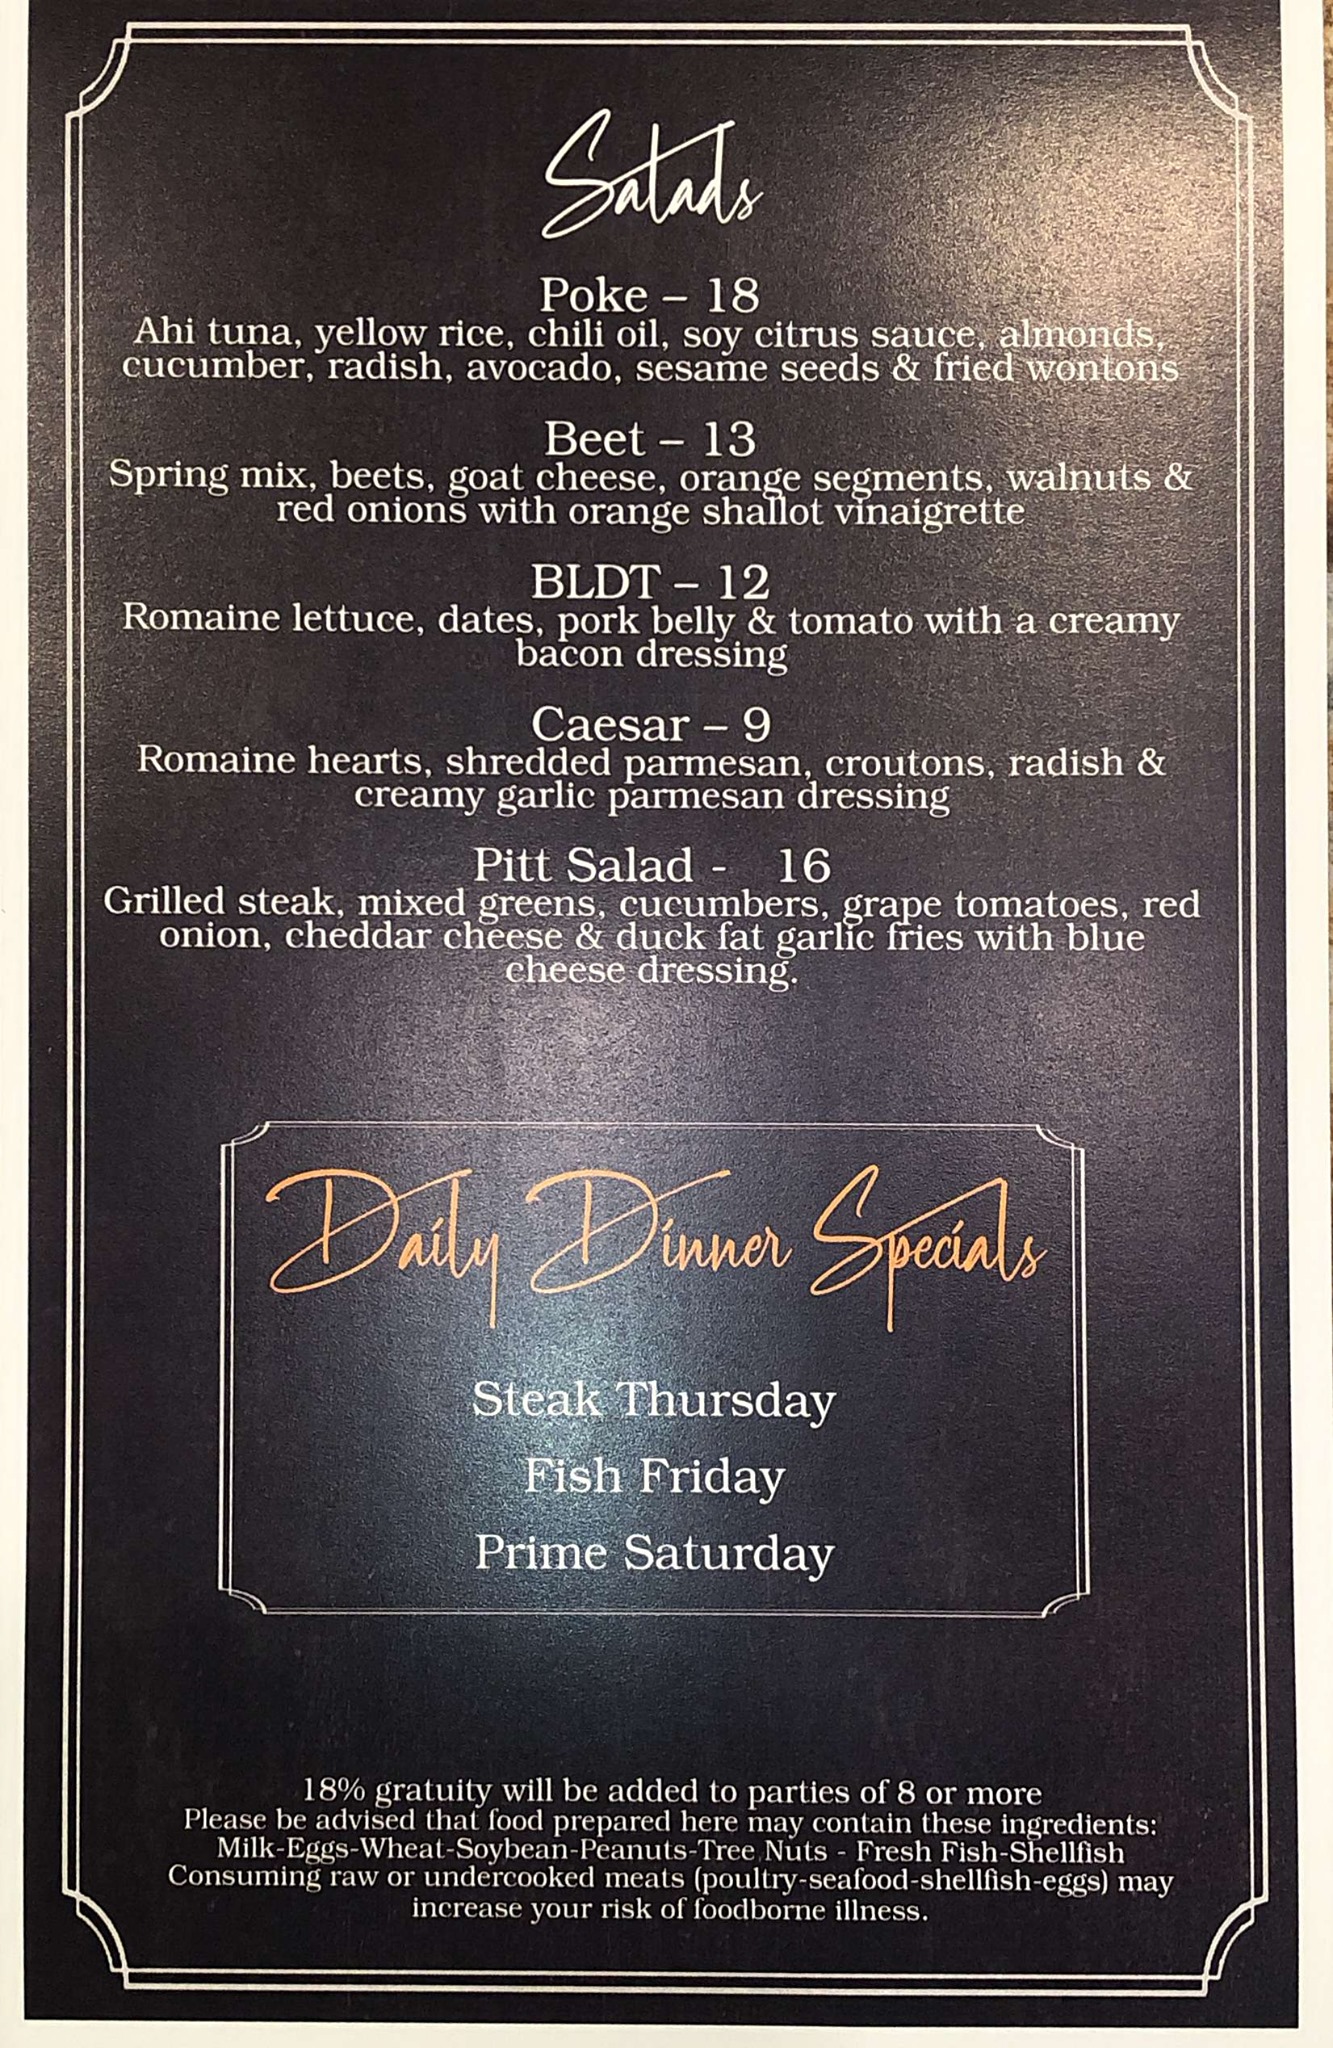 Salads
Poke – 18
Ahi tuna, yellow rice, chili oil, soy citrus sauce, almonds,
cucumber, radish, avocado, sesame seeds & fried wontons
Beet – 13
Spring mix, beets, goat cheese, orange segments, walnuts &
red onions with orange shallot vinaigrette
BLDT – 12
Romaine lettuce, dates, pork belly & tomato with a creamy
bacon dressing
Caesar – 9
Romaine hearts, shredded parmesan, croutons, radish &
creamy garlic parmesan dressing
Pitt Salad - 16
Grilled steak, mixed greens, cucumbers, grape tomatoes, red
onion, cheddar cheese & duck fat garlic fries with blue
cheese dressing.
Daily Dinner Specials
Steak Thursday
Fish Friday
Prime Saturday
18% gratuity will be added to parties of 8 or more
Please be advised that food prepared here may contain these ingredients:
Milk-Eggs-Wheat-Soybean-Peanuts-Tree Nuts - Fresh Fish-Shellfish
Consuming raw or undercooked meats (poultry-seafood-shellfish-eggs) may
increase your risk of foodborne illness.